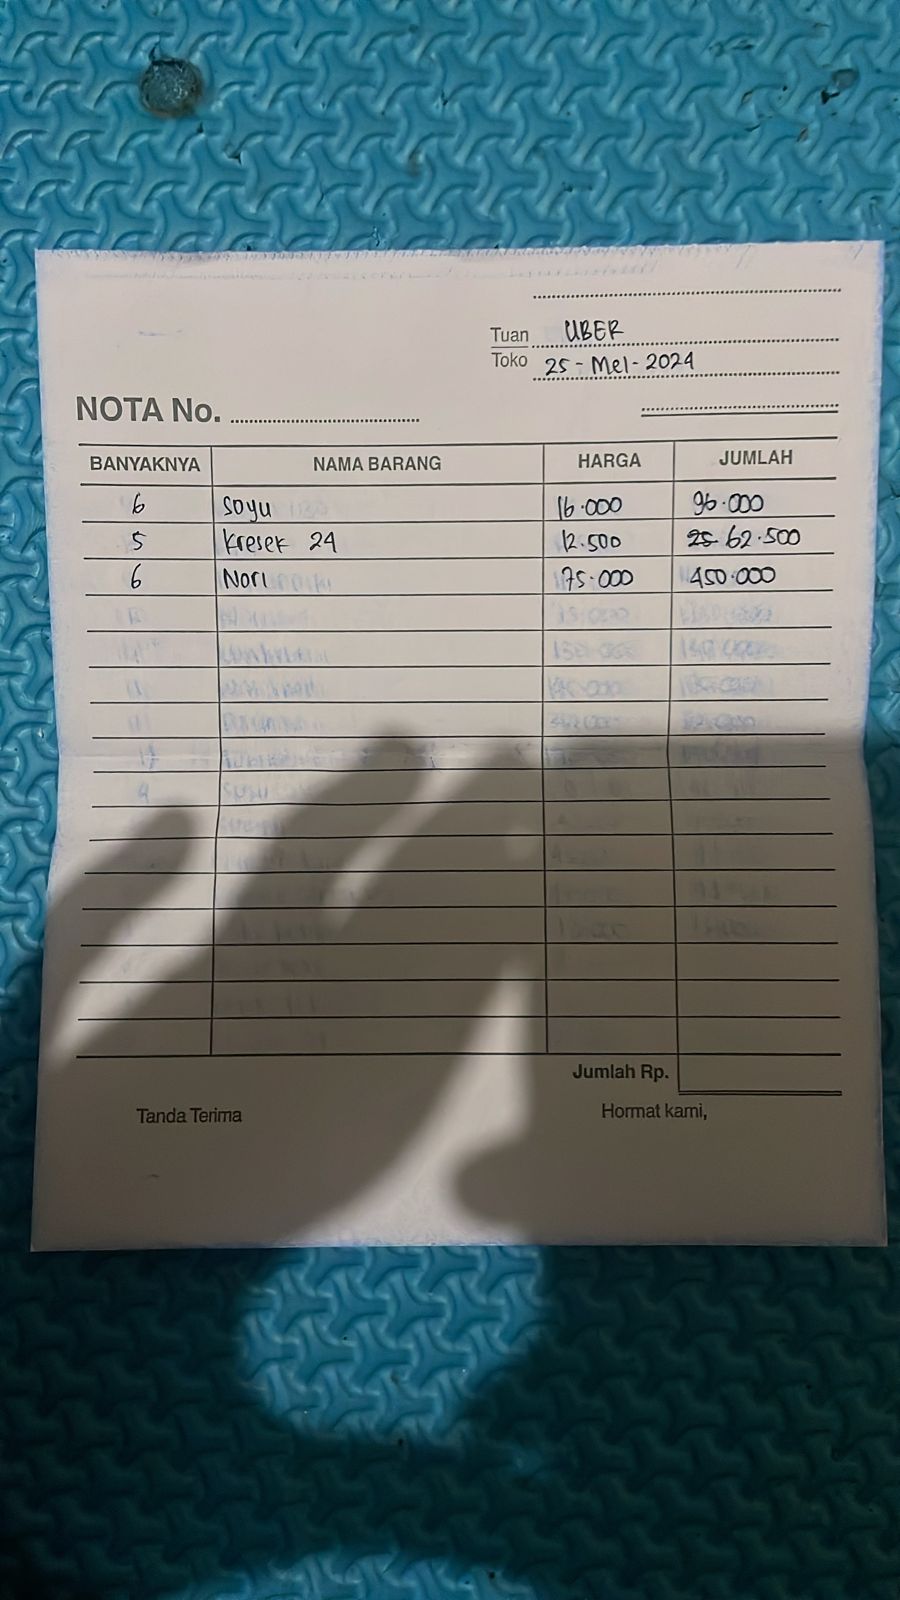 Tuan UBER
Toko 25 - Mei - 2024
NOTA No.
BANYAKNYA NAMA BARANG HARGA JUMLAH
6 Soyu 16.000 96.000
5 Kresek 24 12.500 25 62.500
6 Nori 75.000 450.000
Jumlah Rp.
Tanda Terima Hormat kami,